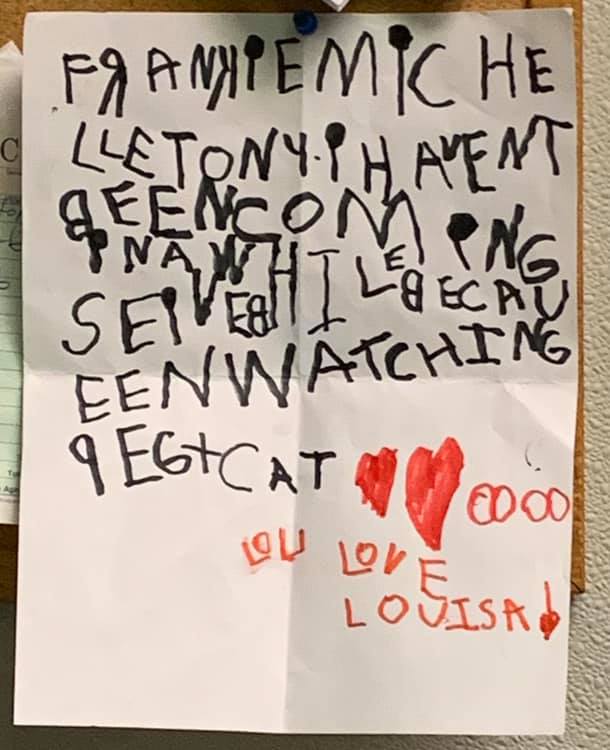 FRANKIEMICHE
LLETONY.IHAVENT
BEENCOMING
INAWHILEBECAU
SEIVEB
EENWATCHING
PEG+CAT
OOOO
LOU LOVE
LOUISA!